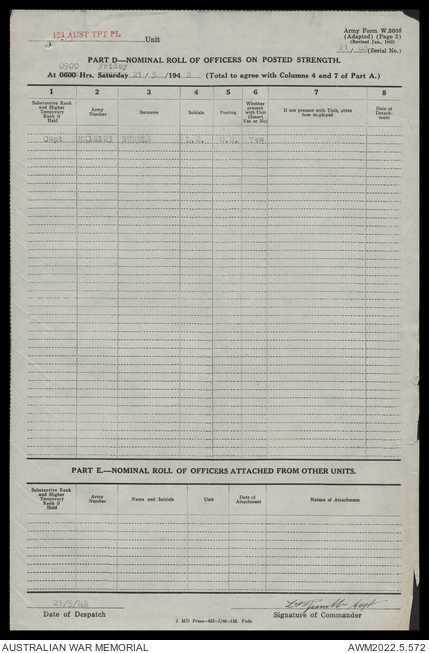 Army Form W.3008
(Adapted) (Page 2)
(Revised Jan., 1945)
(Serial No.)
123 AUST TPT PL Unit
PART D—NOMINAL ROLL OF OFFICERS ON POSTED STRENGTH.
0900 Friday
At 0600 Hrs. Saturday 21/5/1948 (Total to agree with Columns 4 and 7 of Part A.)
1 2 3 4 5 6 7 8
Substantive Rank and Higher Temporary Rank if Held
Army Number
Surname
Initials
Posting
Whether present with Unit (Insert Yes or No)
If not present with Unit, state how employed
Date of Detachment
Capt O.C. Yes
PART E.—NOMINAL ROLL OF OFFICERS ATTACHED FROM OTHER UNITS.
Substantive Rank and Higher Temporary Rank if Held
Army Number
Name and Initials
Unit
Date of Attachment
Nature of Attachment
21/5/48
Date of Despatch
Capt
Signature of Commander
AUSTRALIAN WAR MEMORIAL
AWM2022.5.572